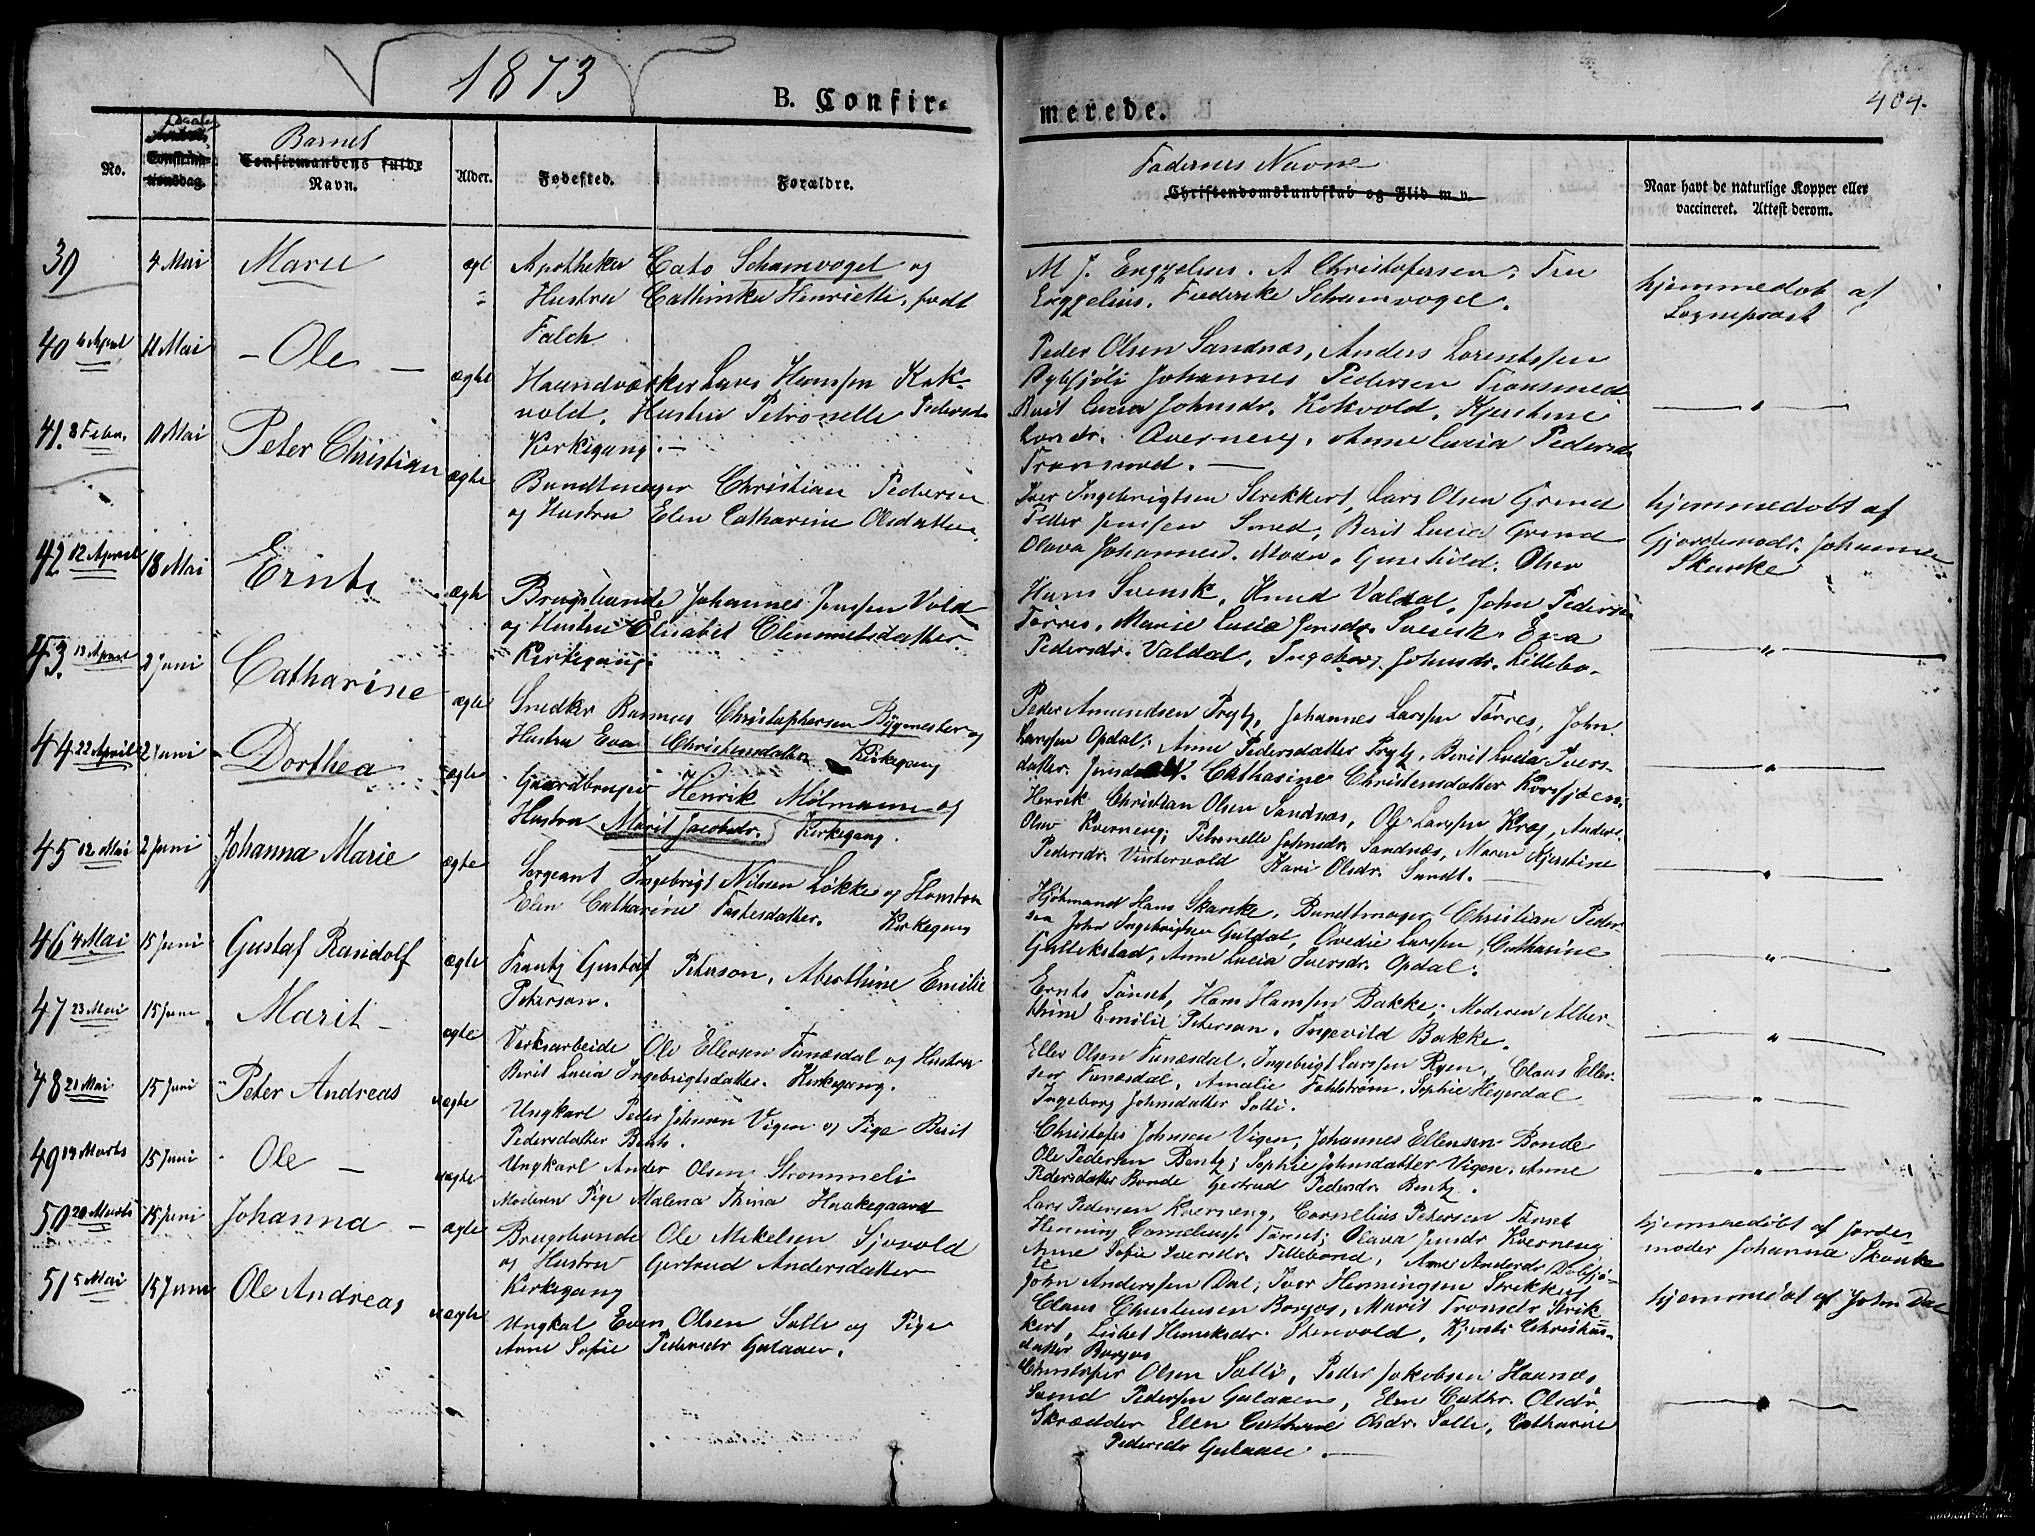 1873
404.
B. Confir-
merede.
Daabs
Barnet
Fadernes Navne
No.
Confirma-
tionsdag.
Confirmandens fulde
Navn.
Alder.
Fødested.
Forældre.
Christendomskundskab og Flid m. v.
Naar havt de naturlige Kopper eller
vaccineret. Attest derom.
39 4 Mai Marie ægt Apotheker Cato Schamvogel og
Hustru Cathinka Henriette, født
Falch
M J. Engzelius. A Christofersen. Fru
Engzelius. Frederike Schamvogel.
hjemmedøbt af
Sognepræst
40 6 April 11 Mai – Ole – ægte Haandværker Lars Hansen Kok-
vold, Hustru Petronelle Pedersd
Kirkegang. –
Peder Olsen Sandnæs, Anders Lorentssen
Johannes Pedersen Transmed
Berit Lucia Johnsdr. Kokvold, Kjerstine
Kverneng, Anne Lucia Pedersd
41. 8 Febr. 11 Mai Peter Christian ægte Bundtmager Christian Pedersen
og Hustru Elen Catharine Olsdatter.
Iver Ingebrigtsen Strekkert, Lars Olsen Grind
Peder Jenssen Smed, Berit Lucia Grind
Olava Johannesd. Moen, Gunhild Olsen
hjemmedøbt af
Gjordemodr. Johanna
Skanke
42 12 April 18 Mai Ernts ægte Brugsbonde Johannes Jenssen Vold
og Hustru Elisabet Clemmetsdatter.
Kirkegang.
Hans Svensk, Knud Valdal, John Pedersen
Tørres, Marie Lucia Jensdr. Svensk, Eva
Pedersdr. Valdal, Ingeborg Johnsdr. Lillebo.
43. 13 April 2 Juni Catharine ægte Snedker Rasmus Christophersen Bygmester og
Hustru Eva Christensdatter Kirkegang
Peder Amundsen Prytz, Johannes Larssen Tørres, John
Larssen Opdal, Anne Pedersdatter Prytz, Berit Lucia Ivers-
datter. Catharine Christensdatter Korssjøen
44 22 April 2 Juni Dorthea ægte Gaardbruger Henrik Mølmann og
Hustru Marit Jacobsdr. Kirkegang.
Henrik Christian Olsen Sandnæs, Ole Larssen Krog, Anders
Olsen Kverneng, Petronelle Johnsdr. Sandnæs, Maren Kjerstine
Pedersdr. Vintervold Kari Olsdr. Sandt. –
45 12 Mai 2 Juni Johanna Marie ægte Sergeant Ingebrigt Nilsen Løkke og Hustru
Elen Catharine Tostesdatter. Kirkegang
Hjøtmand Hans Skanke, Bundtmager Christian Peder-
sen John Ingebrigtsen Guldal, Ovedie Larssen, Catharine
Gullikstad, Anne Lucia Iversdr. Opdal.
46 4 Mai 15 Juni Gustaf Randolf ægte Frantz Gustaf Peterson, Alberthine Emilie
Peterson.
Ernts Tønset, Hans Hanssen Bakke, Moderen Alber-
thine Emilie Peterson, Ingevild Bakke.
47 23 Mai 15 Juni Marit – ægte Verksarbeide Ole Ellersen Funæsdal og Hustru
Berit Lucia Ingebrigtsdatter. Kirkegang.
Eller Olsen Funæsdal, Ingebrigt Larssen Ryen, Claus Eller-
sen Funæsdal, Amalie Fahlstrøm, Sophie Hegerdal
Ingeborg Johnsdatter Solli.
48 21 Mai 15 Juni Peter Andreas uægte Ungkarl Peder Johnsen Vigen og Pige Berit
Pedersdatter Bentz.
Christofer Johnsen Vigen, Johannes Ellensen Bonde
Ole Pedersen Bentz, Sophie Johnsdatter Vigen, Anne
Pedersdatter Bonde Gertrud Pedersdr. Bentz.
49 14 Marts 15 Juni Ole – uægte Ungkarl Ander Olsen Strommeli
Moderen Pige Malena Thina Haakegaard
Lars Pedersen Kverneng, Cornelius Petersen Tønset
Henning Corneliuss. Tønset, Olava Jensdr Kverneng
Anne Sofie Iversdr. Lillebond,
50 20 Marts 15 Juni Johanna – ægte Brugsbonde Ole Mikelsen Sjovold
og Hustru Gertrud Andersdatter
Kirkegang
John Anderssen Dal, Iver Henningsen Strekkert
Claus Christensen Borgos, Marit Tronsdr Strik-
kert, Lisbet Henriksdr. Stenvold, Kjersti Christens-
datter Borgos
hjemmedøbt af Jorde-
moder Johanna Skanke
hjemmedøbt af John Dal
51 5 Mai 15 Juni Ole Andreas uægte Ungkal Even Olsen Solli og Pige
Anne Sofie Pedersdr Gulaaen.
Christofer Olsen Solli, Peder Jakobsen Haanæs
Svend Pedersen Gulaaen, Elen Cathr. Olsdr.
Skrædder Elen Cathrine Olsdr. Solli, Catharine
Pedersdr Gulaaen. –